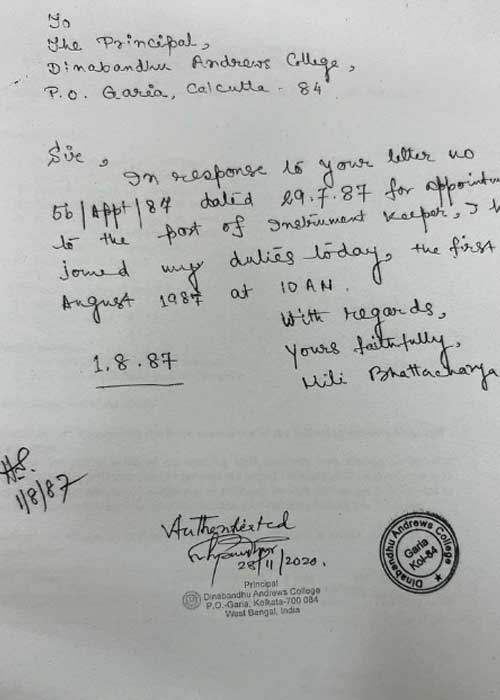 To
The Principal,
Dinabandhu Andrews College,
P.O. Garia, Calcutta - 84
Sir,
In response to your letter no
56/Appt/87 dated 29.7.87 for appointm
to the post of Instrument Keeper, I h
joined my duties today, the first
August 1987 at 10 AN.
With regards,
Yours faithfully,
Mili Bhattacharya
1.8.87
1/8/87
Authenticated
28/11/2020.
Principal
Dinabandhu Andrews College
P.O.-Garia, Kolkata-700 084
West Bengal, India
Dinabandhu Andrews College
Garia
Kol-84